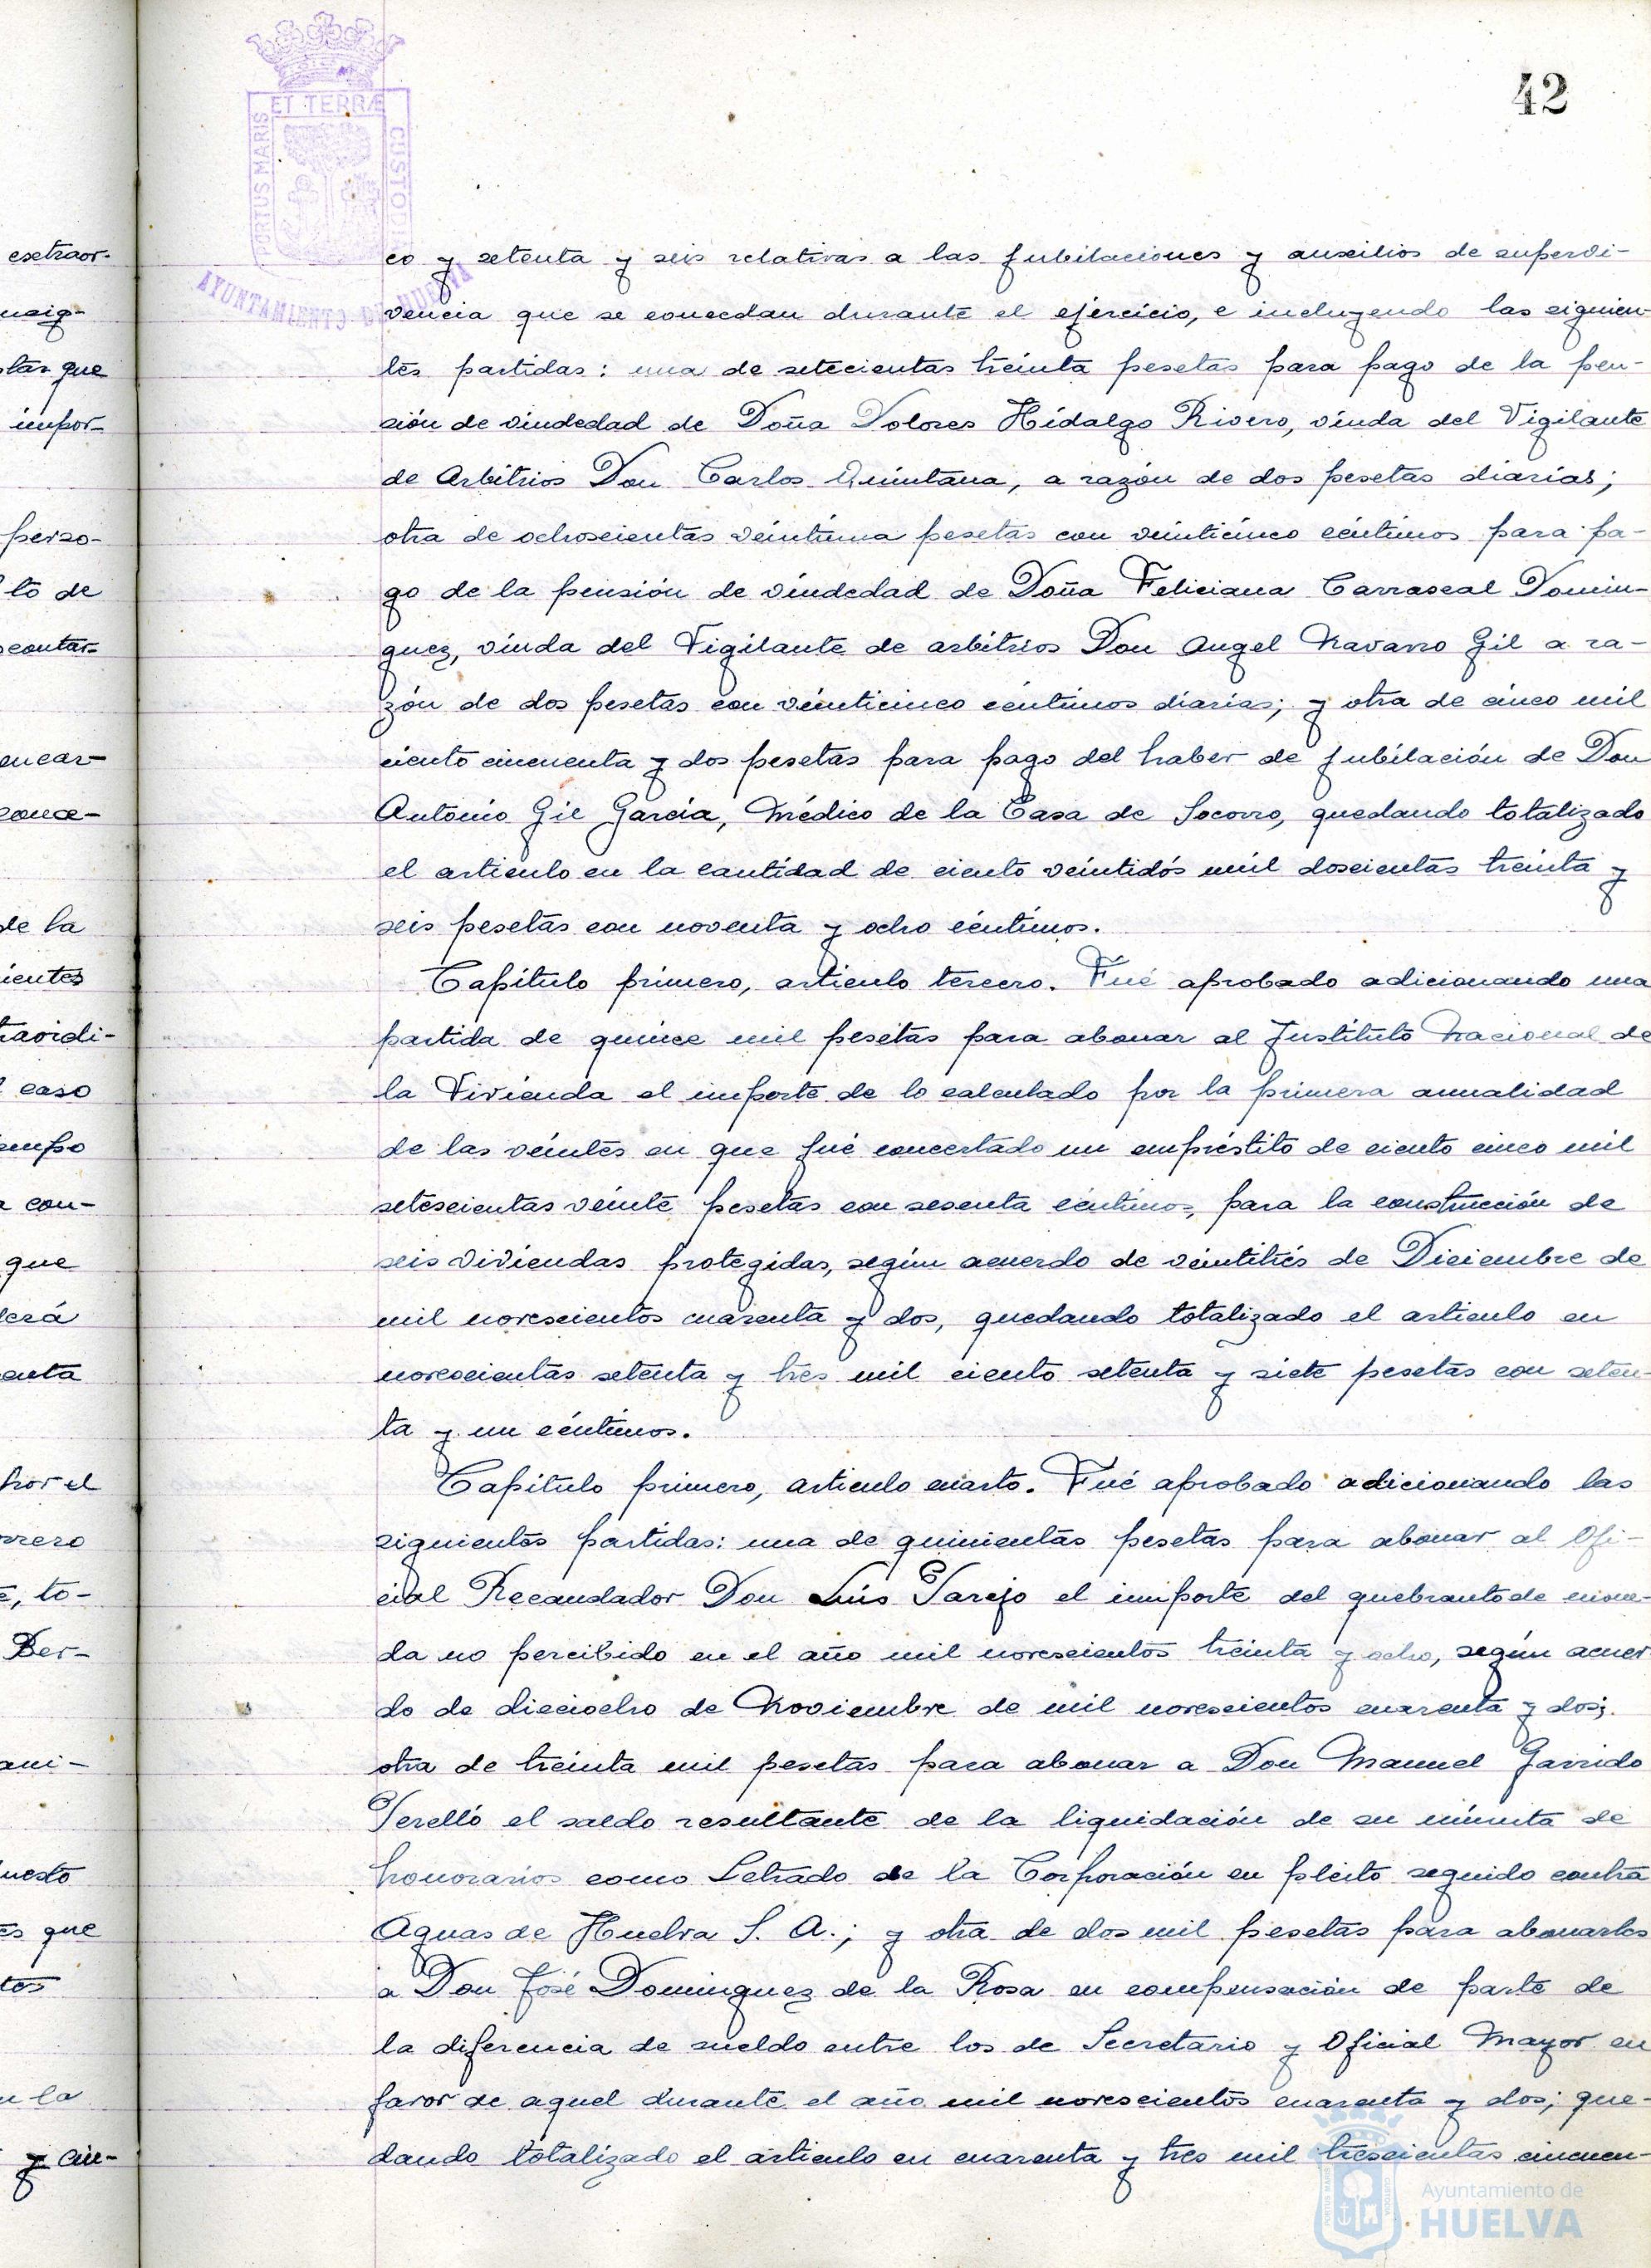 42
ET TERRÆ
PORTUS MARIS
CUSTODIA
AYUNTAMIENTO DE HUELVA
co y setenta y seis relativas a las jubilaciones y auxilios de superdi-
vencia que se concedan durante el ejercicio, e incluyendo las siguien-
tes partidas: una de setecientas treinta pesetas para pago de la pen-
sión de viudedad de Doña Dolores Hidalgo Rivero, viuda del Vigilante
de Arbitrios Don Carlos Quintana, a razón de dos pesetas diarias;
otra de ochoscientas veintiuna pesetas con veinticinco céntimos para pa-
go de la pensión de viudedad de Doña Feliciana Carrascal Domin-
guez, viuda del Vigilante de arbitrios Don Angel Navarro Gil a ra-
zón de dos pesetas con veinticinco céntimos diarias; y otra de cinco mil
ciento cincuenta y dos pesetas para pago del haber de jubilación de Don
Antonio Gil García, Médico de la Casa de Socorro, quedando totalizado
el articulo en la cantidad de ciento veintidós mil doscientas treinta y
seis pesetas con noventa y ocho céntimos.
Capítulo primero, articulo tercero. Fué aprobado adicionando una
partida de quince mil pesetas para abonar al Instituto Nacional de
la Vivienda el importe de lo calculado por la primera anualidad
de las veintes en que fué concertado un empréstito de ciento cinco mil
setescientas veinte pesetas con sesenta céntimos, para la construcción de
seis viviendas protegidas, según acuerdo de veintitrés de Diciembre de
mil novescientos cuarenta y dos, quedando totalizado el articulo en
novescientas setenta y tres mil ciento setenta y siete pesetas con seten-
ta y un céntimos.
Capítulo primero, articulo cuarto. Fué aprobado adicionando las
siguientes partidas: una de quinientas pesetas para abonar al Ofi-
cial Recaudador Don Luis Tarejo el importe del quebranto de mone-
da no percibido en el año mil novescientos treinta y ocho, según acuer-
do de dieciocho de Noviembre de mil novescientos cuarenta y dos;
otra de treinta mil pesetas para abonar a Don Manuel Garrido
Perelló el saldo resultante de la liquidación de su minuta de
honorarios como Letrado de la Corporación en pleito seguido contra
Aguas de Huelva S. A.; y otra de dos mil pesetas para abonarlas
a Don José Dominguez de la Rosa en compensación de parte de
la diferencia de sueldo entre los de Secretario y Oficial Mayor en
favor de aquel durante el año mil novescientos cuarenta y dos; que-
dando totalizado el articulo en cuarenta y tres mil trescientas cincuen-
Ayuntamiento de
HUELVA